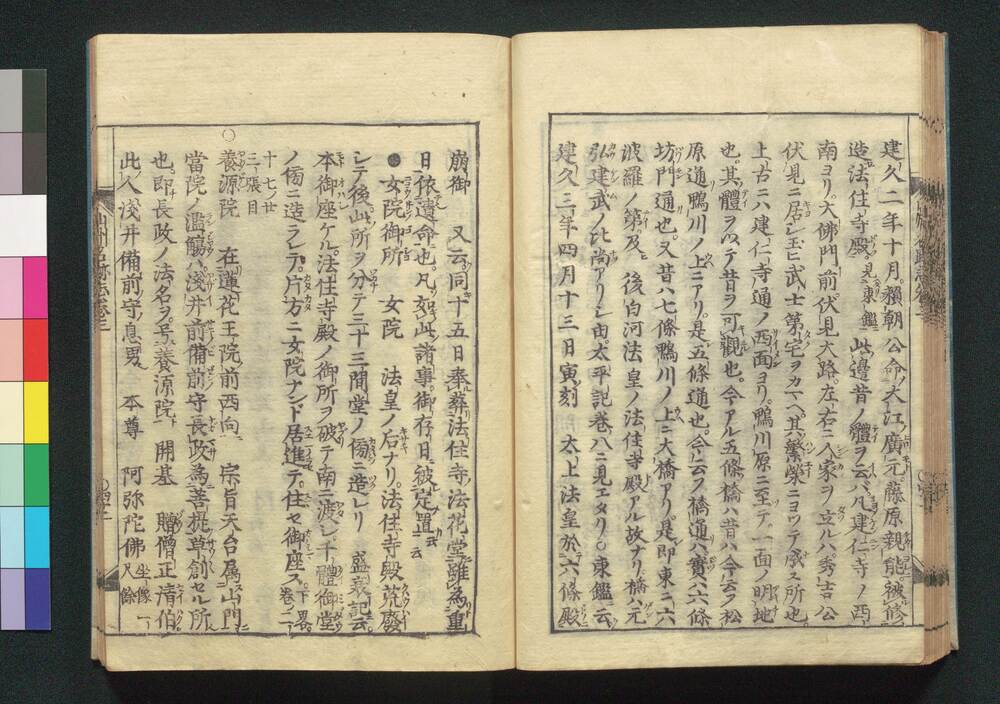 建久二年十月頼朝公命大江廣元藤原親能被修
造法住寺殿見東鑑此邊昔ノ體ヲ云ハ凡建仁寺ノ西
南ヨリ大佛門前伏見大路左右ニ人家ヲ立ルハ秀吉公
伏見ニ居シ玉ヒ武士第宅ヲカマヘ其繁榮ニヨツテ成ス所也
上古ニハ建仁寺通ノ西面ヨリ鴨川原ニ至テ一面ノ明地
也其體ヲ以テ昔ヲ可觀也今アル五條橋ハ昔ハ今云フ松
原通鴨川ノ上ニアリ是五條通也今云フ橋通ハ實ハ六條
坊門通也又昔ハ七條鴨川ノ上ニ大橋アリ是即東ニ六
波羅ノ第及後白河法皇ノ法住寺殿アル故ナリ橋ハ元
弘建武ノ比尚アリシ由太平記巻八ニ見エタリ○東鑑云
建久三年四月十三日寅刻太上法皇於六條殿
崩御 又云同十五日奉葬法住寺法花堂雖為重
日依遺命也凡如此諸事御存日被定置云云
●女院御所 女院 法皇ノ后ナリ法住寺殿荒廢
シテノ後此所ヲ分テ三十三間堂ノ傍ニ造レリ 盛衰記云
本御座ケル法住寺殿ノ御所ヲ破テ南ニ渡シ千體御堂
ノ傍ニ造ラレテ片方ニ女院ナンド居進テ住セ御座ス下畧巻ノ二
十七ノ廿
三張目
○養源院 在蓮花王院前西向 宗旨天台属山門
當院ノ濫觴ハ淺井前備前守長政為菩提草創セル所
也即長政ノ法名ヲ号養源院 開基 贈僧正清伯
此人淺井備前守息男 本尊 阿弥陀佛坐像一尺餘